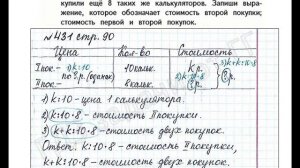 купили ещё 8 таких же калькуляторов. Запиши выра-
жение, которое обозначает стоимость второй покупки;
стоимость первой и второй покупок.
№431 стр. 90
Цена Кол-во Стоимость
I пок.- 1) k:10 10 кальк. k р. 3) k+k:10·8
по ? р. (одинак) 2) k:10·8 ? р.
II пок.- 8 кальк. ? р.
1) k:10 - цена 1 калькулятора.
2) k:10·8 - стоимость II покупки.
3) k+k:10·8 - стоимость двух покупок.
Ответ: k:10·8 - стоимость II покупки,
k+k:10·8 - стоимость двух покупок.